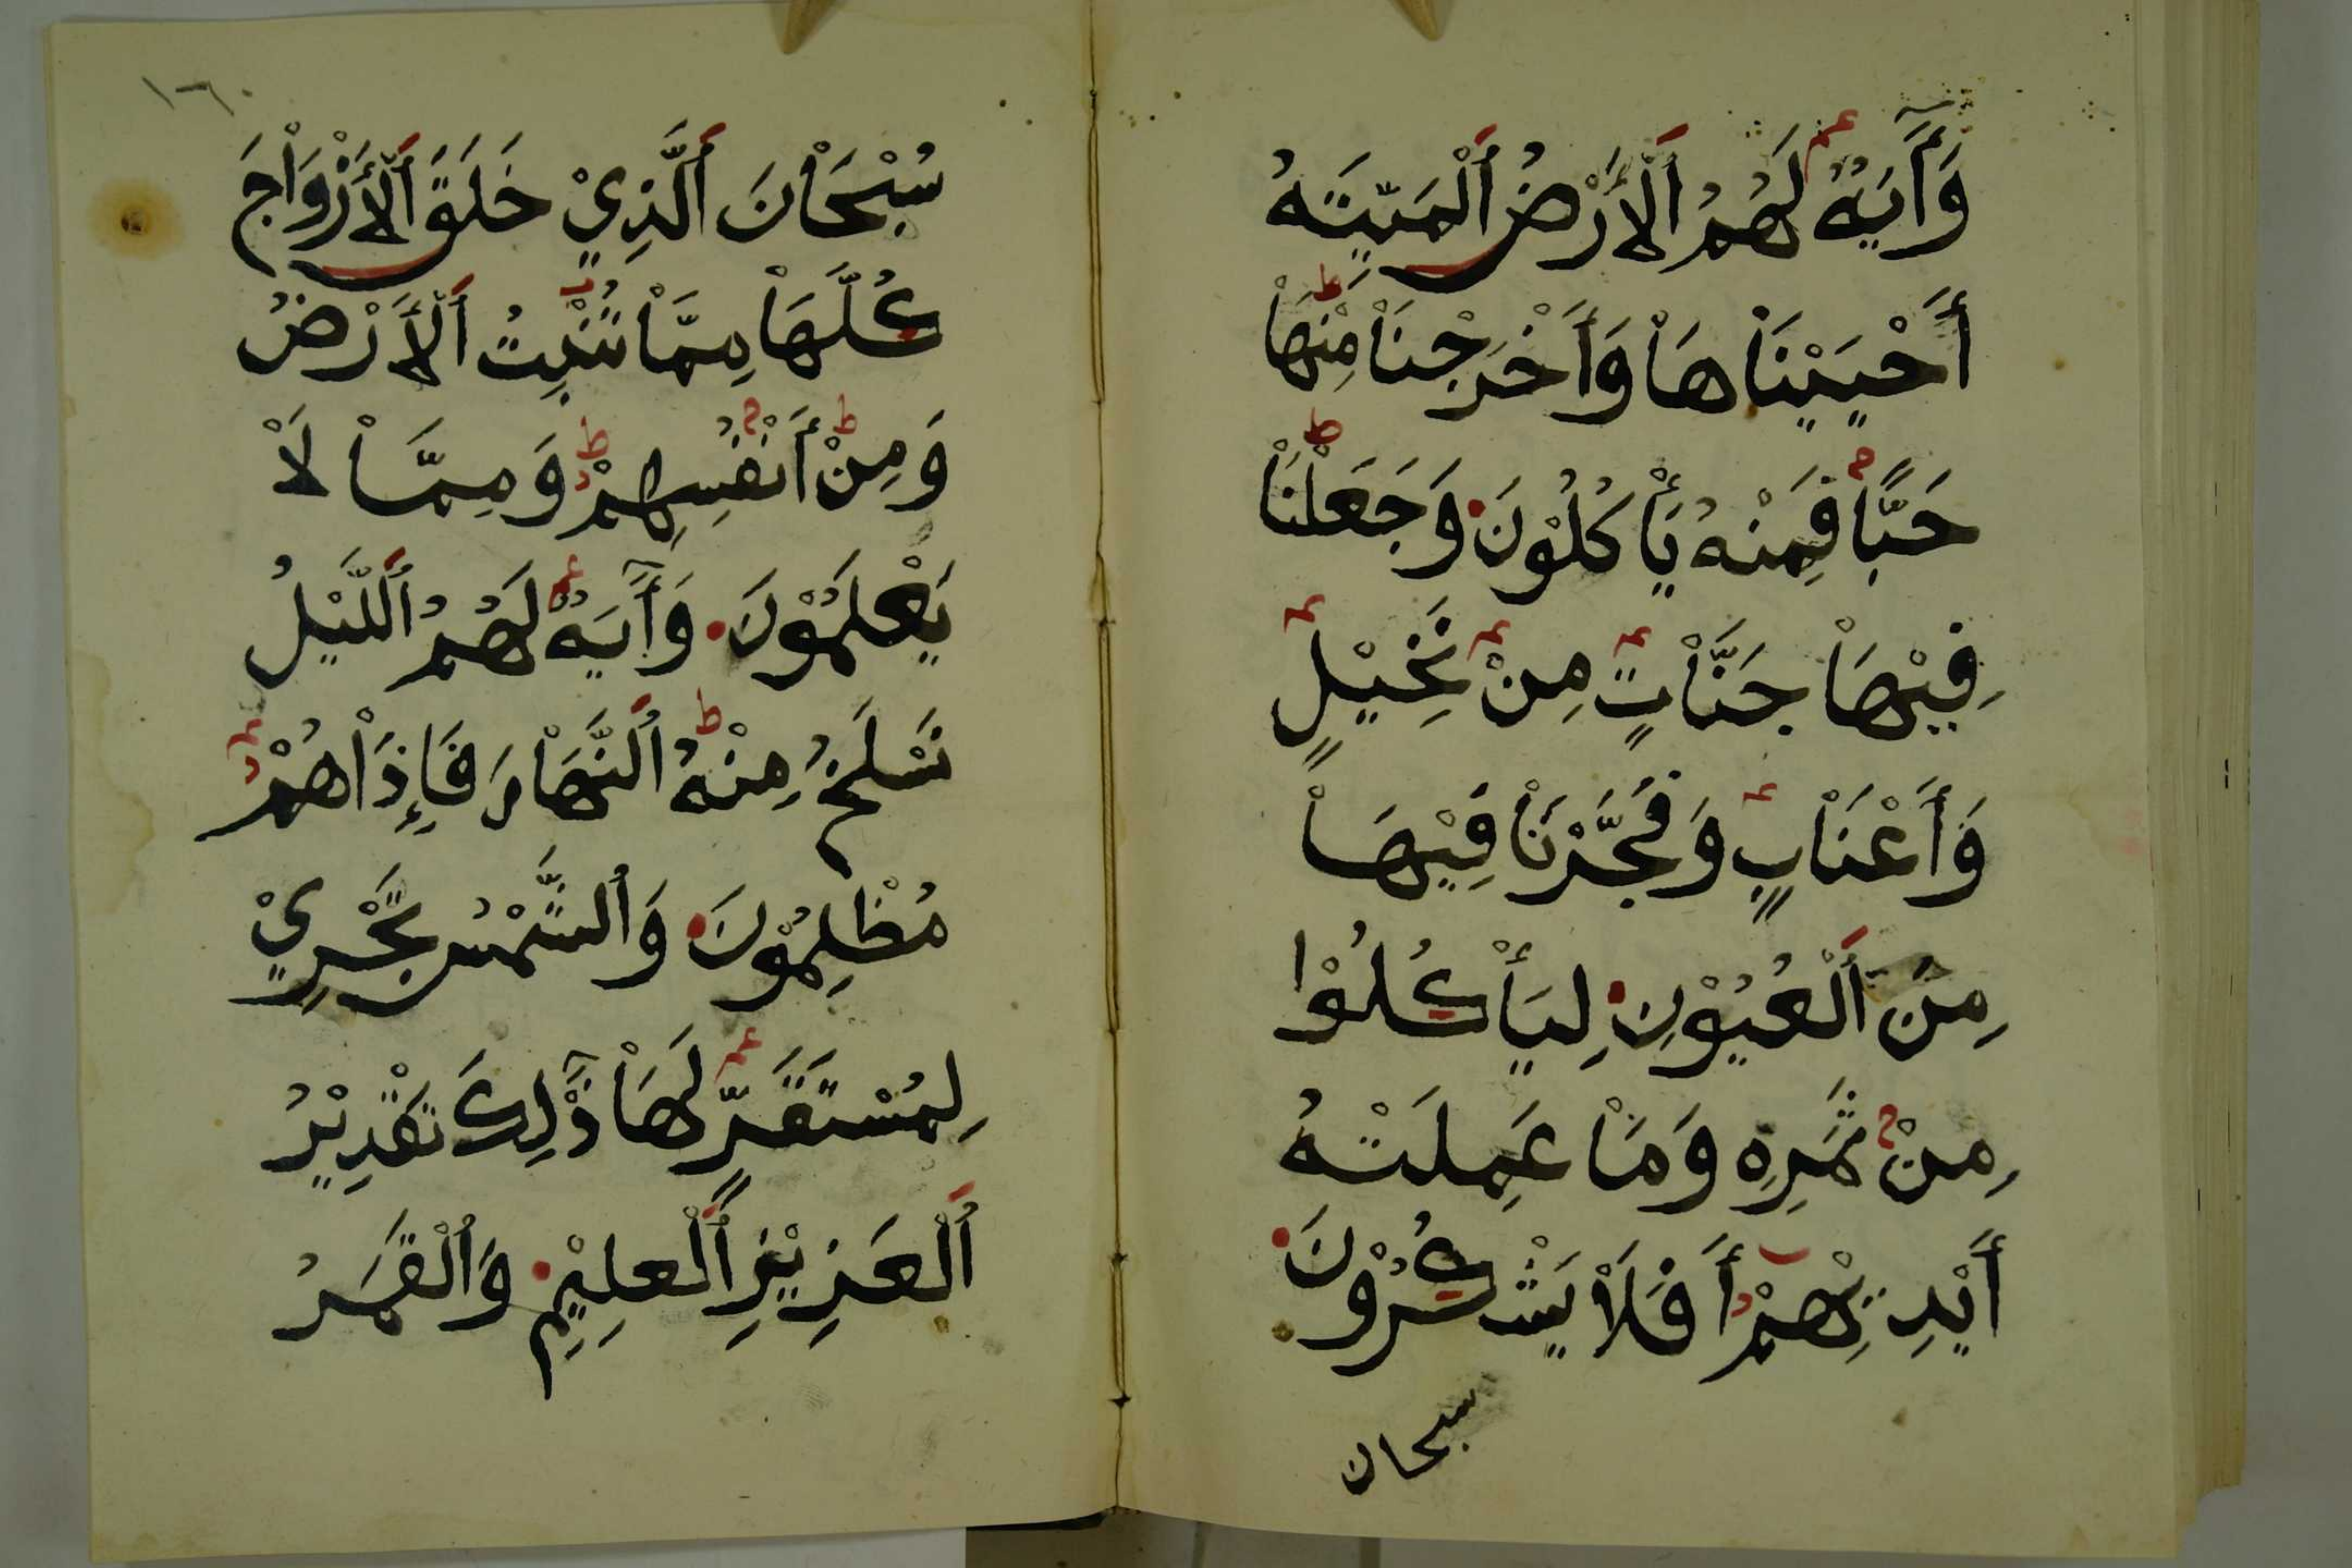 وَآيَةٌ لَهُمُ ٱلْأَرْضُ ٱلْمَيِّتَةُ
أَحْيَيْنَاهَا وَأَخْرَجْنَا مِنْهَا
حَبًّا فَمِنْهُ يَأْكُلُوْنَ وَجَعَلْنَا
فِيْهَا جَنَّاتٍ مِنْ نَخِيْلٍ
وَأَعْنَابٍ وَفَجَّرْنَا فِيْهَا
مِنَ ٱلْعُيُوْنِ لِيَأْكُلُوْا
مِنْ ثَمَرِهِ وَمَا عَمِلَتْهُ
أَيْدِيْهِمْ أَفَلَا يَشْكُرُوْنَ
سبحان
١٦٠
سُبْحَانَ ٱلَّذِيْ خَلَقَ ٱلْأَزْوَاجَ
كُلَّهَا مِمَّا تُنْبِتُ ٱلْأَرْضُ
وَمِنْ أَنْفُسِهِمْ وَمِمَّا لَا
يَعْلَمُوْنَ وَآيَةٌ لَهُمُ ٱللَّيْلُ
نَسْلَخُ مِنْهُ ٱلنَّهَارَ فَإِذَا هُمْ
مُظْلِمُوْنَ وَٱلشَّمْسُ تَجْرِيْ
لِمُسْتَقَرٍّ لَهَا ذَٰلِكَ تَقْدِيْرُ
ٱلْعَزِيْزِ ٱلْعَلِيْمِ وَٱلْقَمَرُ